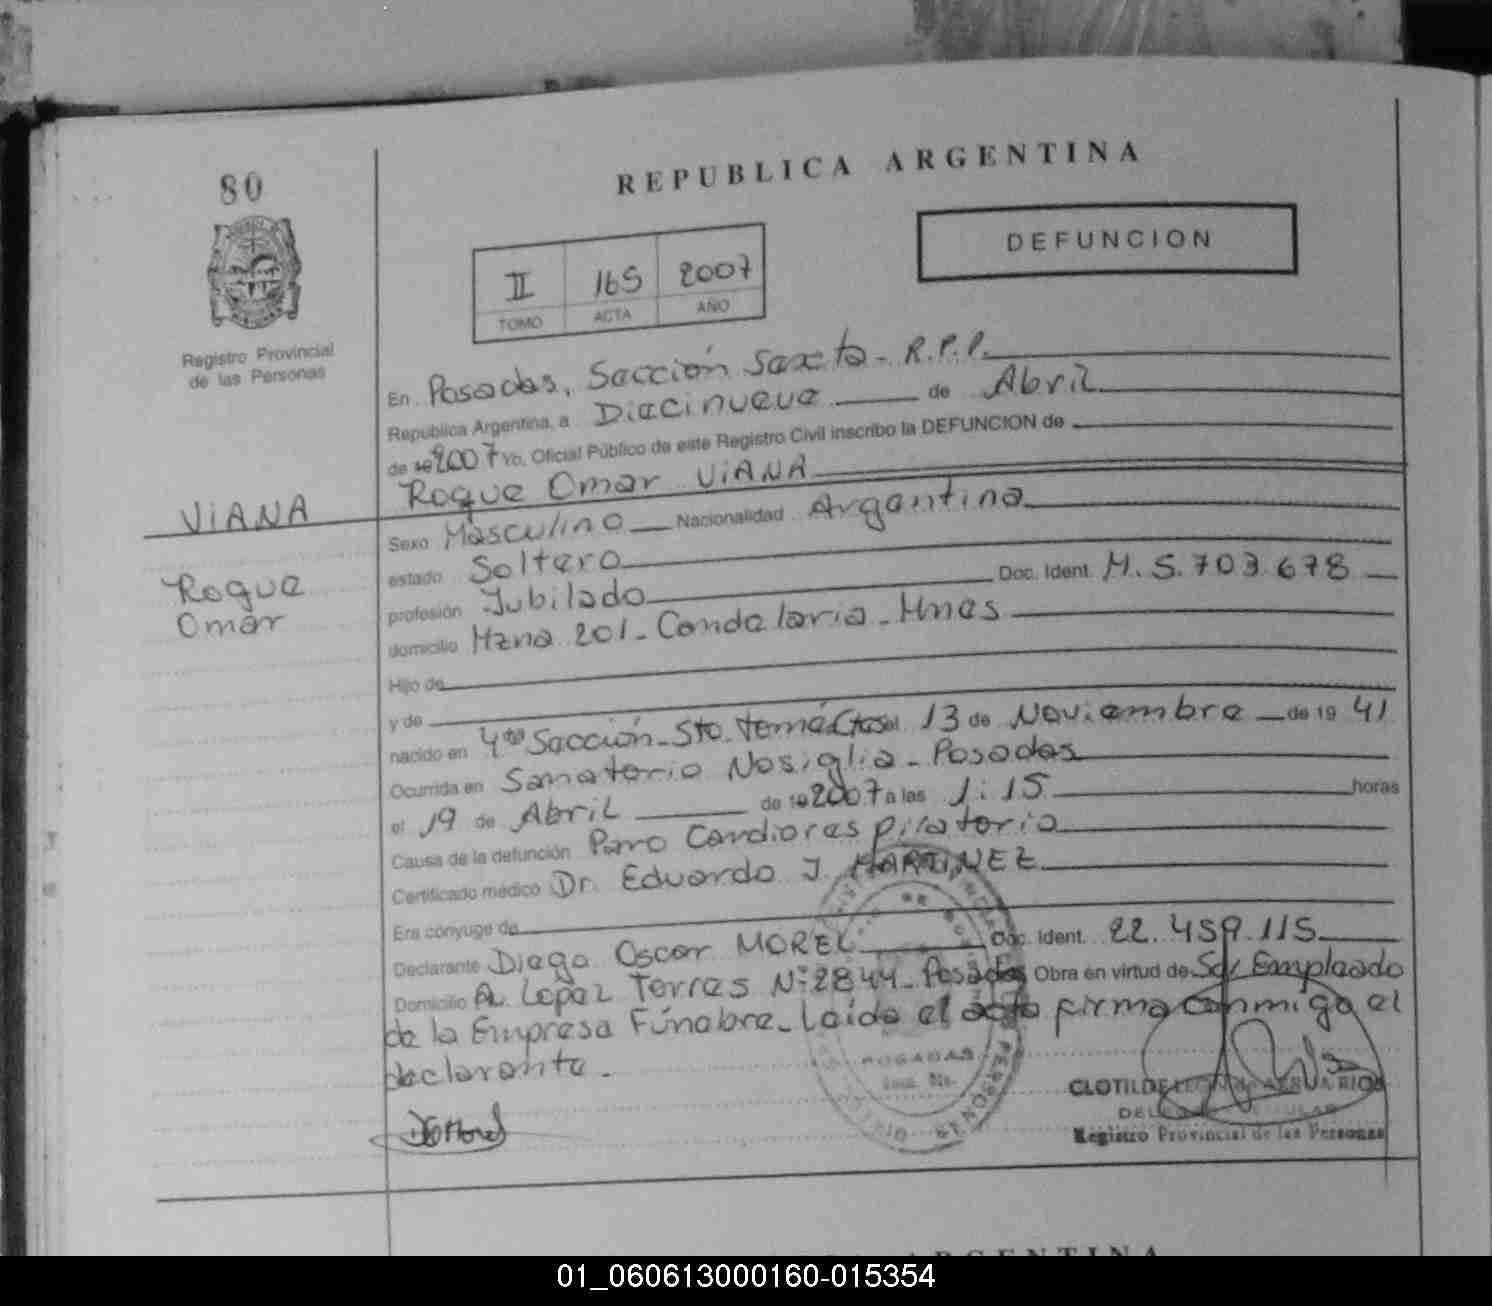 REPUBLICA ARGENTINA
80
DEFUNCION
II 165 2007
TOMO ACTA AÑO
Registro Provincial
de las Personas
En Posadas, Sección Sexta - R.P.P.
República Argentina, a Diecinueve de Abril
de 19 2007 Yo, Oficial Público de este Registro Civil inscribo la DEFUNCION de
Roque Omar VIANA
VIANA
Roque
Omar
Sexo Masculino Nacionalidad Argentina
estado Soltero
profesión Jubilado Doc. Ident. M. 5.703.678
domicilio Mzna 201 - Candelaria - Mnes
Hijo de
y de
nacido en 4ta Sección - Sto. Tomé Ctes el 13 de Noviembre de 19 41
Ocurrida en Sanatorio Nosiglia - Posadas
el 19 de Abril de 19 2007 a las 1:15 horas
Causa de la defunción Paro Cardiorespiratorio
Certificado médico Dr. Eduardo J. MARTINEZ
Era cónyuge de
Declarante Diego Oscar MOREL Doc. Ident. 22.459.115
Domicilio Av. Lopez Torres Nº 2844 - Posadas Obra en virtud de Ser Empleado
de la Empresa Fúnebre - Leída el acta firma conmigo el
declarante.
POSADAS
CLOTILDE RIOS
Registro Provincial de las Personas
ARGENTINA
01_060613000160-015354